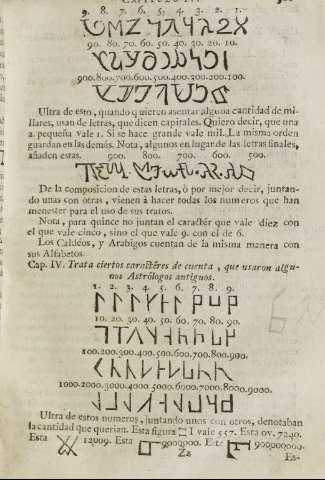 9. 8. 7. 6. 5. 4. 3. 2. 1.
90. 80. 70. 60. 50. 40. 30. 20. 10.
900.800.700.600.500.400.300.200.100.
Ultra de esto, quando quieren asentar alguna cantidad de mi-
llares, usan de letras, que dicen capitales. Quiero decir, que una
a pequeña vale 1. Si se hace grande vale mil. La misma orden
guardan en las demás. Nota, algunos en lugar de las letras finales,
añaden estas. 900. 800. 700. 600. 500.
De la composicion de estas letras, ò por mejor decir, juntan-
do unas con otras, vienen à hacer todas los numeros que han
menester para el uso de sus tratos.
Nota, para quince no juntan el caractér que vale diez con
el que vale cinco, sino el que vale 9. con el de 6.
Los Caldéos, y Arabigos cuentan de la misma manera con
sus Alfabetos.
Cap. IV. Trata ciertos caractéres de cuenta, que usaron algu-
nos Astrólogos antiguos.
1. 2. 3. 4. 5. 6. 7. 8. 9.
10. 20. 30. 40. 50. 60. 70. 80. 90.
100.200.300.400.500.600.700.800.900.
1000.2000.3000.4000.5000.6000.7000.8000.9000.
Ultra de estos numeros, juntando unos con otros, denotaban
la cantidad que querian. Esta figura I vale 557. Esta 7240.
Esta 12009. Esta 9000000. Esta 900000000.
Zz
Es-